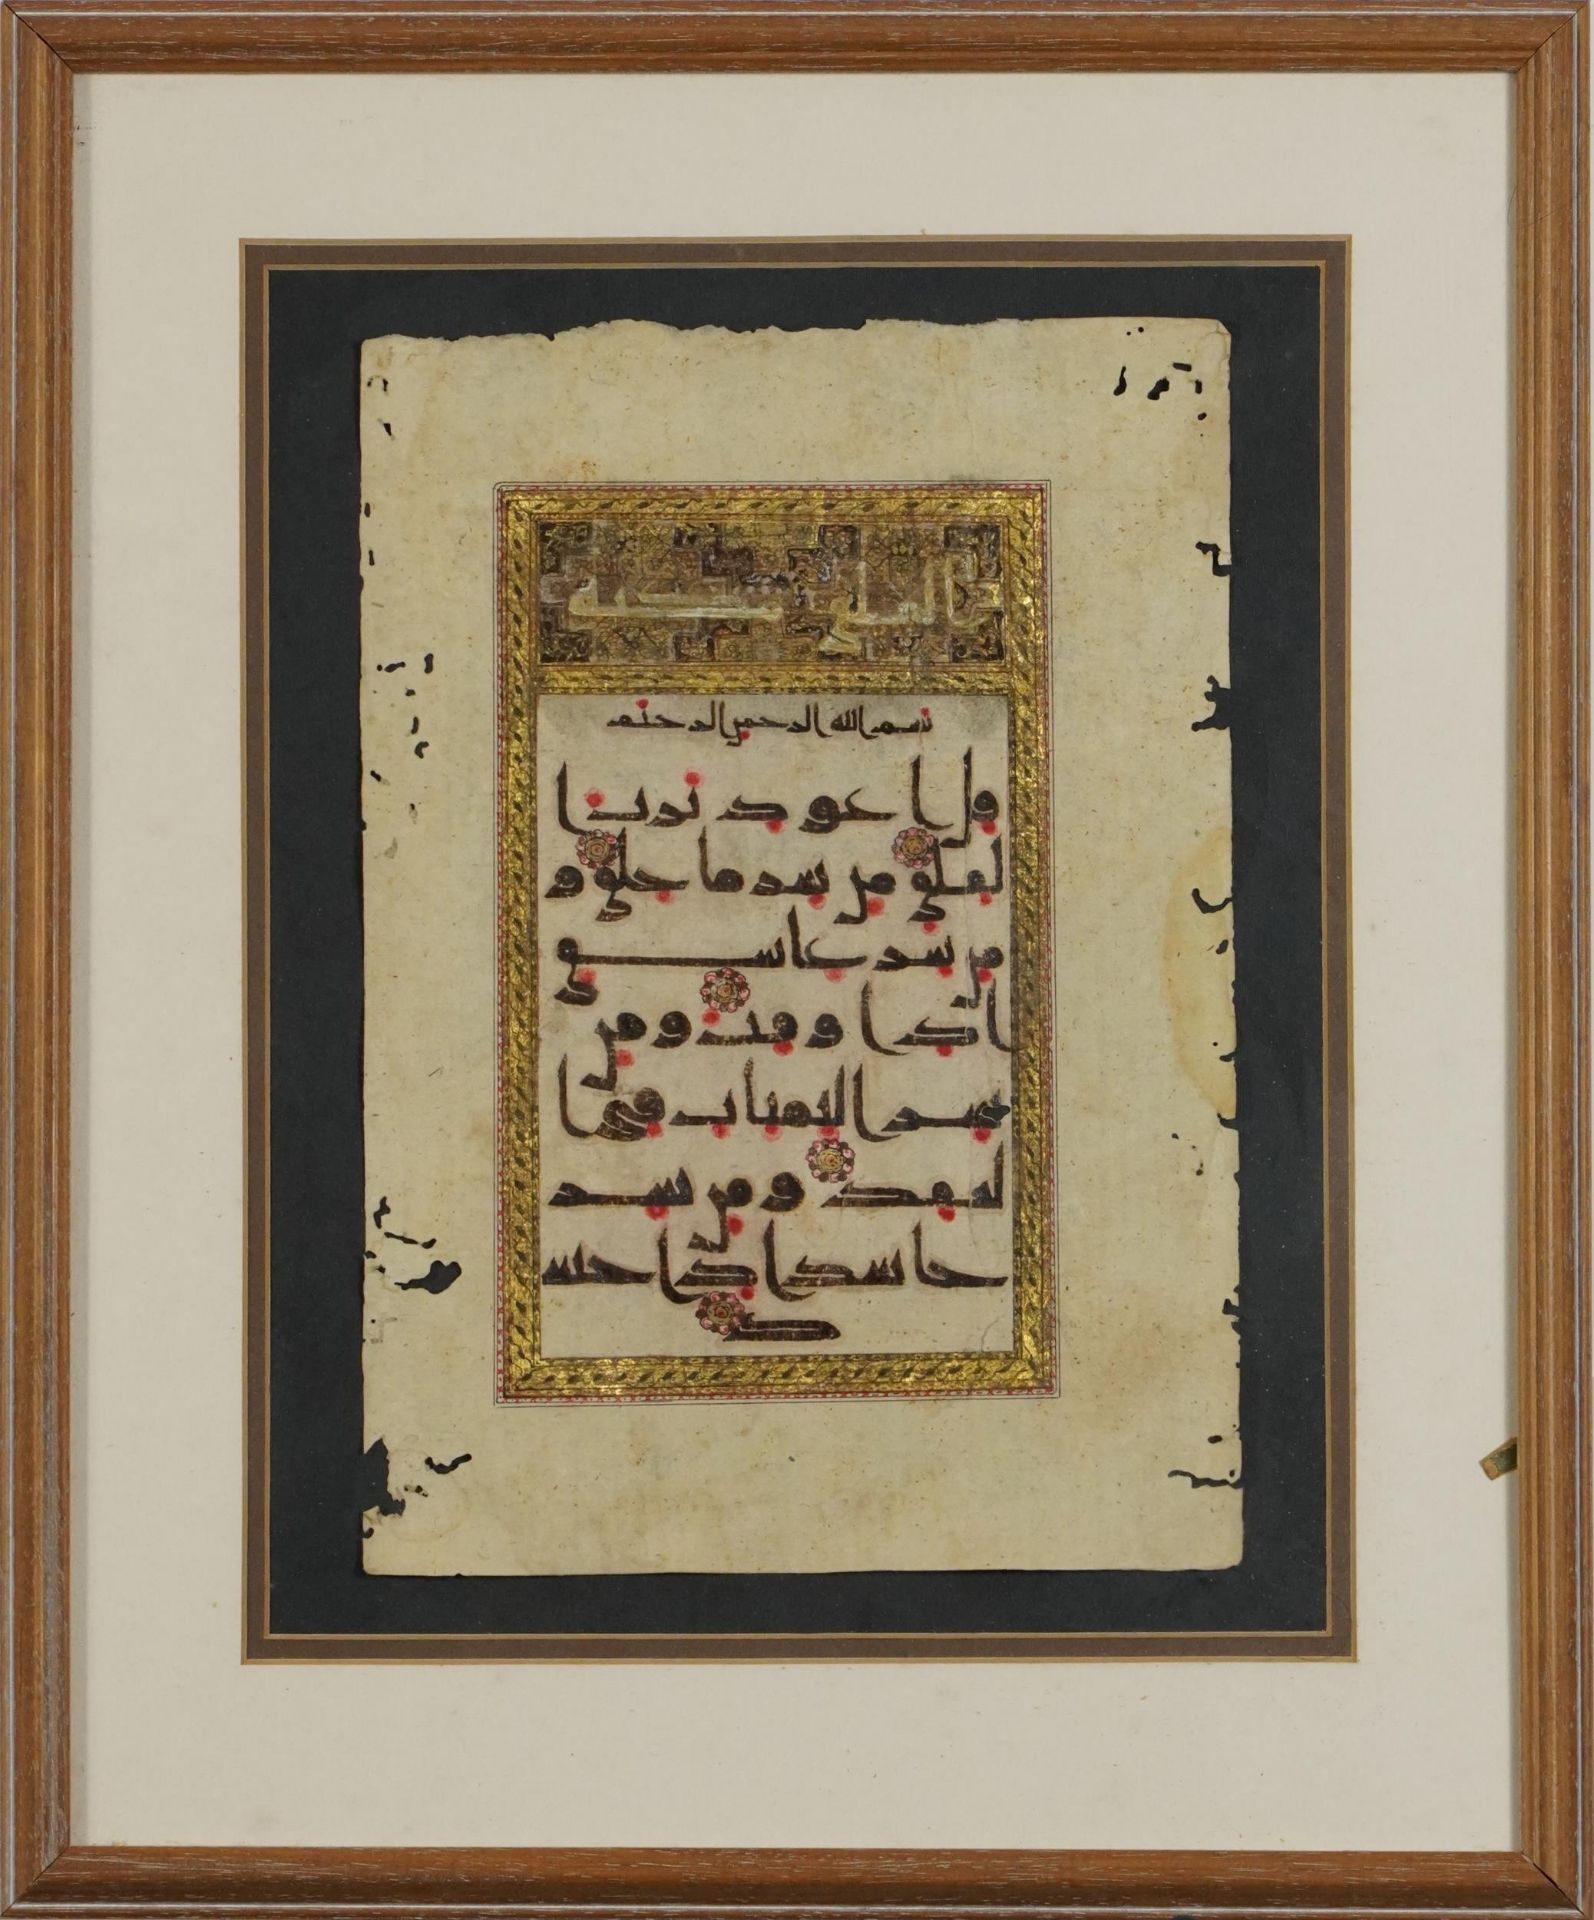 الفلق مكية
بسم الله الرحمن الرحيم
قل اعوذ برب ا
لفلق من شر ما خلق و
من شر غاسق
اذا وقب و من
شر النفثات في ا
لعقد و من شر
حاسد اذا حس
د